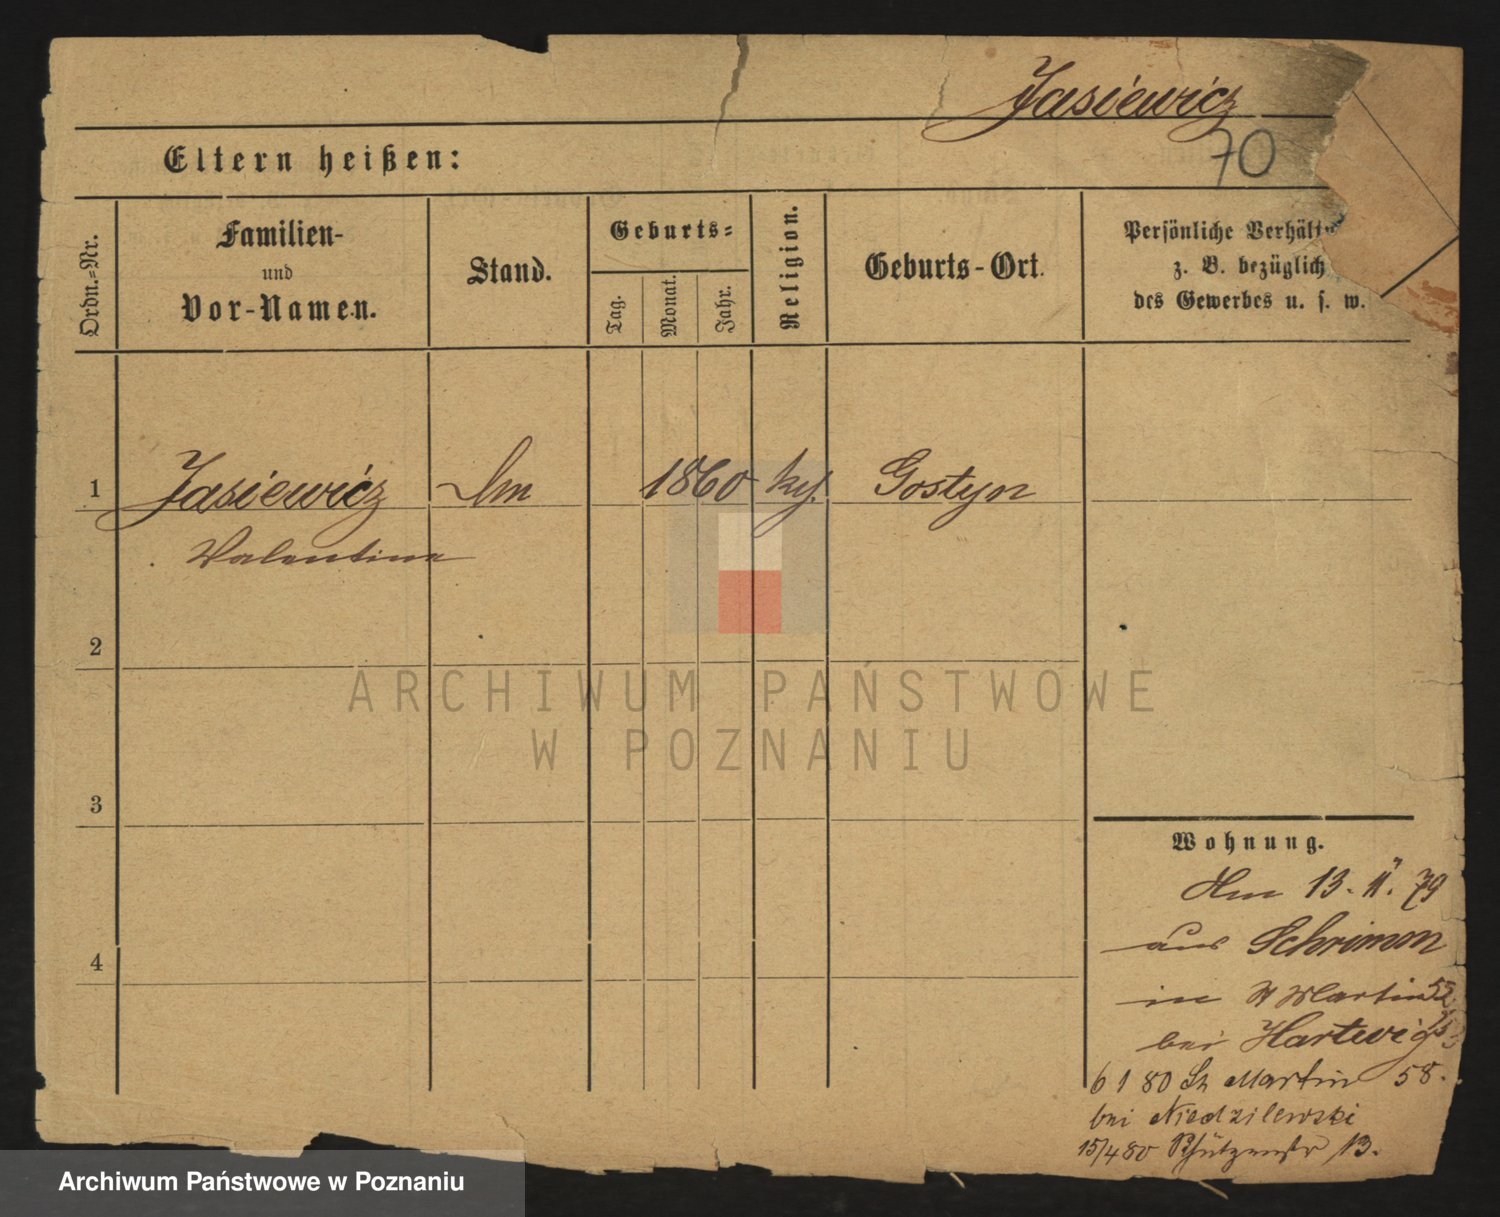 Jasiewicz
70
Eltern heißen:
Ordn.=Nr.
Familien-
und
Vor-Namen.
Stand.
Geburts=
Tag.
Monat.
Jahr.
Religion.
Geburts-Ort.
Persönliche
z. B. bezüglich
des Gewerbes u. s. w.
1 Jasiewicz 1860 Gostyn
Valentine
2
3
4
Wohnung.
13. 11. 79
aus Schrimm
in St Martin
bei Hartwig
6 1 80 St Martin 58.
bei Niedzilewski
15/4 80 Schützenstr 13.
ARCHIWUM PAŃSTWOWE
W POZNANIU
Archiwum Państwowe w Poznaniu